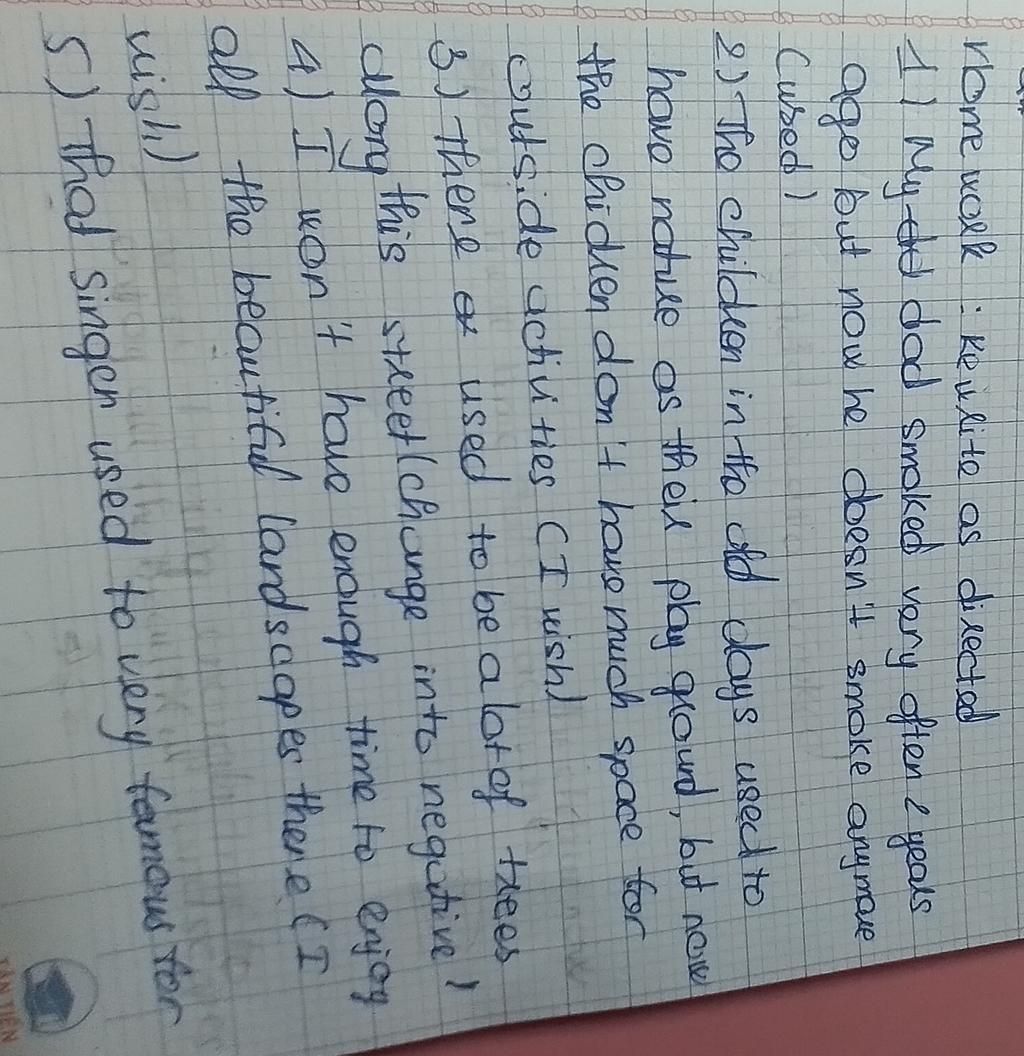 Homework : Rewrite as directed
1) My dad smoked very often 2 years
ago but now he doesn't smoke anymore
(used)
2) The children in the old days used to
have nature as their play ground, but now
the chidren don't have much space for
outside activities (I wish)
3) there used to be a lot of trees
along this street (change into negative)
4) I won't have enough time to enjoy
all the beautiful landscapes there (I
wish)
5) that singer used to very famous for
TÂN TIẾN